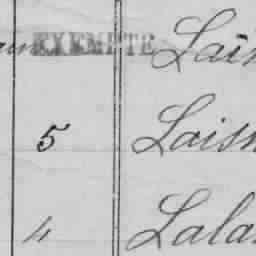 EXEMPTE Laî
5 Lais
4 Lala